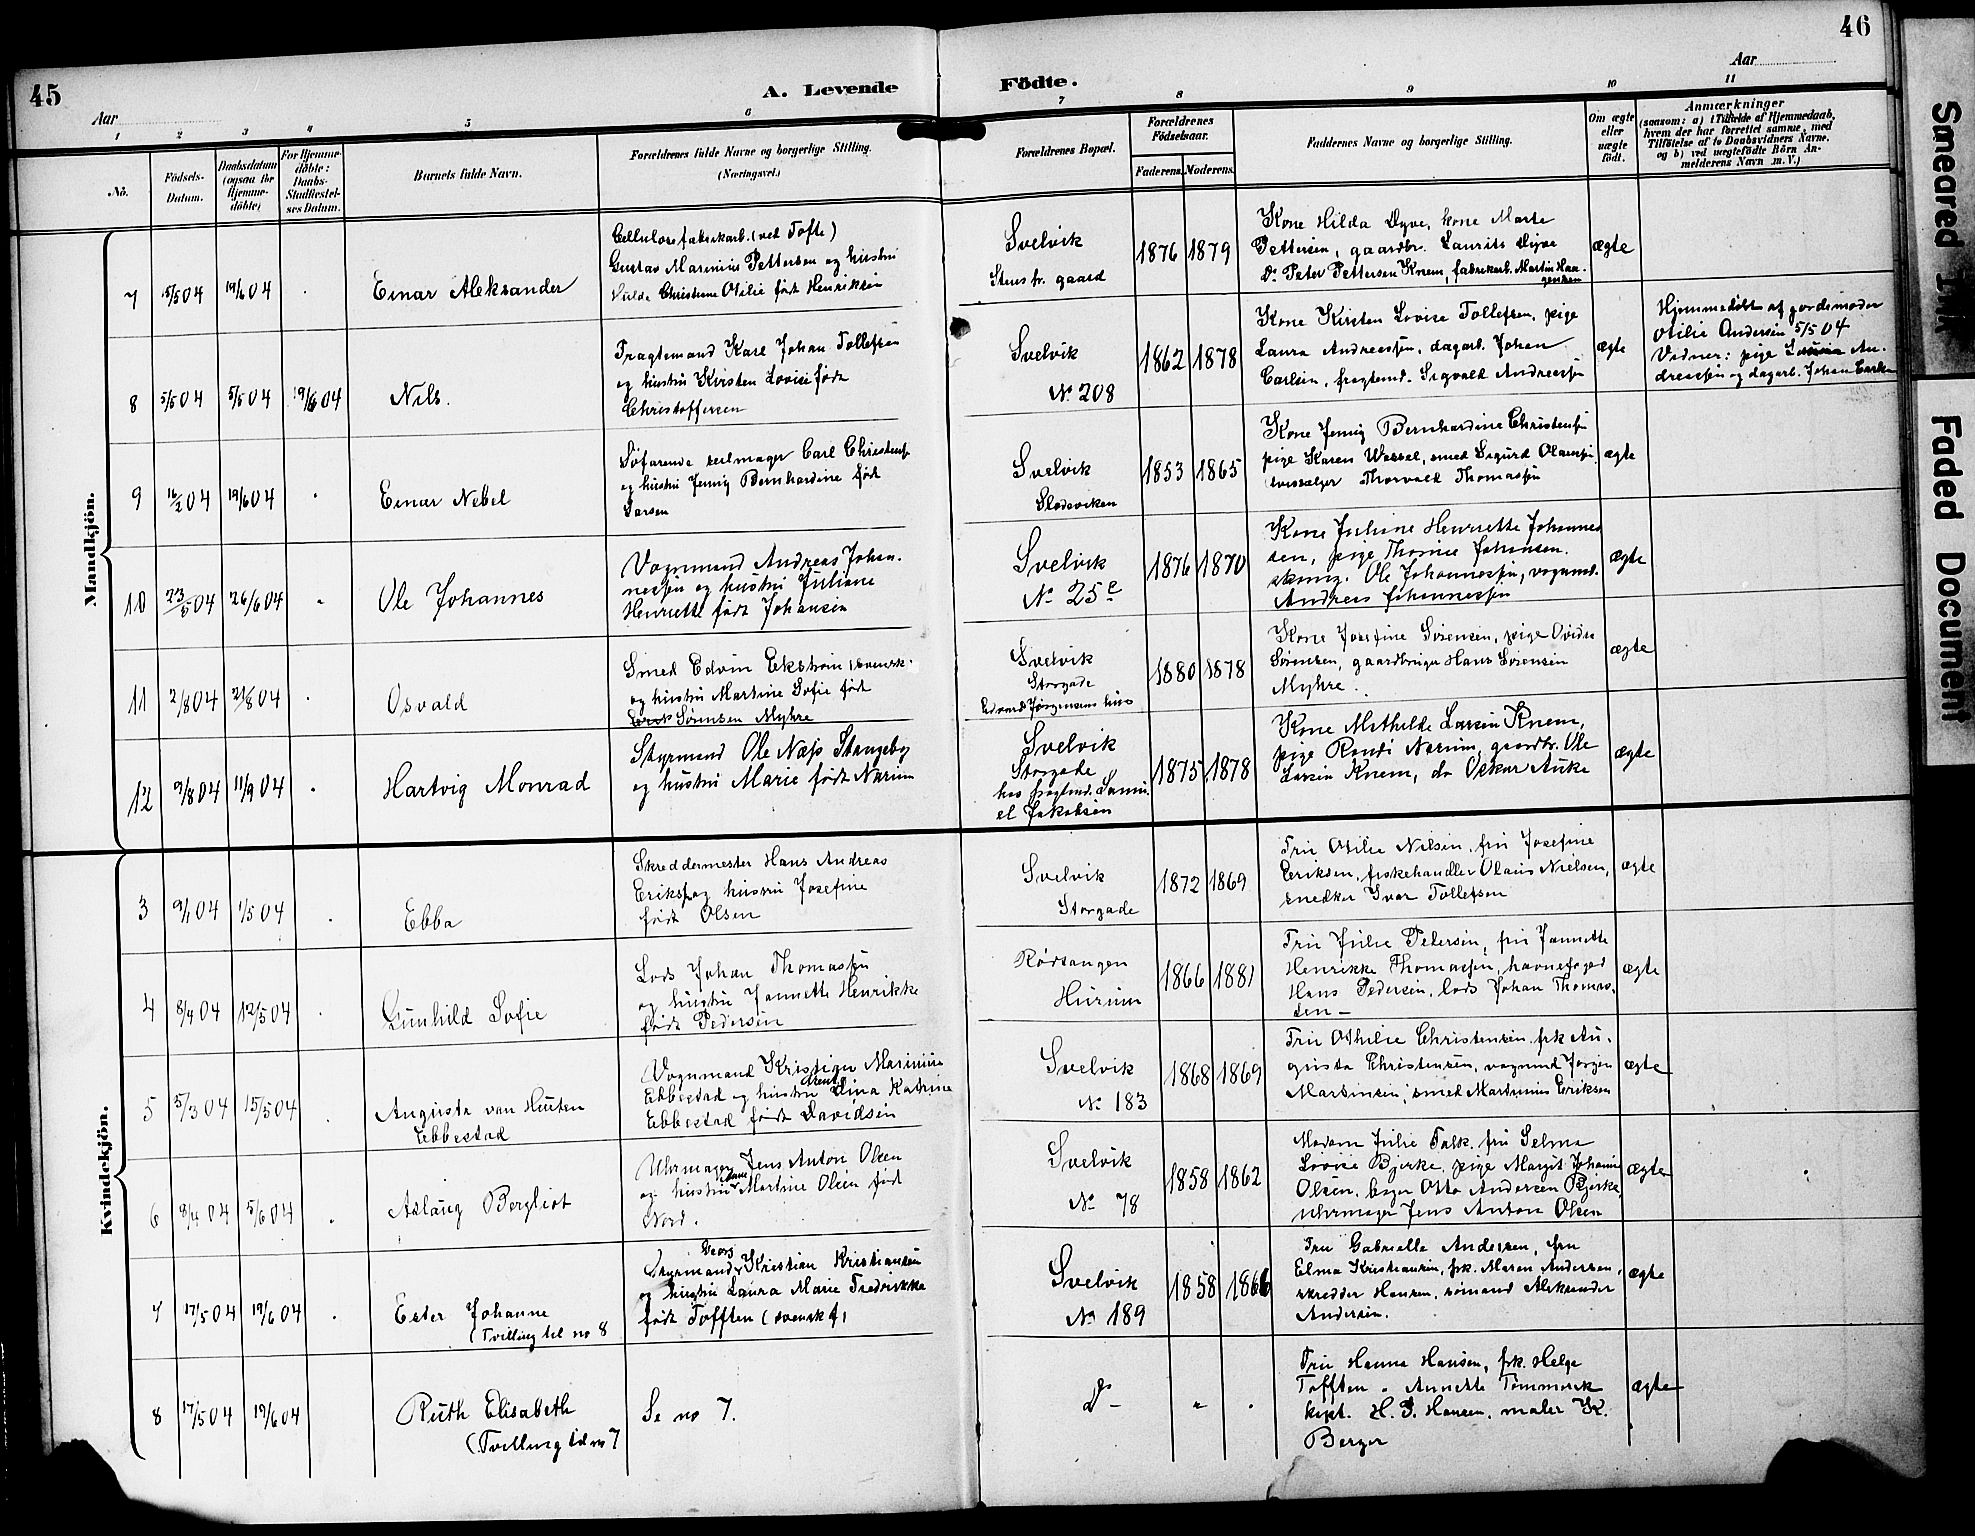 45
46
Aar
A. Levende
Födte.
Aar
1 2 3 4 5 6 7 8 9 10 11
No.
Födsels-Datum.
Daabsdatum (ogsaa for Hjemme-döbte)
For Hjemme-döbte: Daabs-Stadfæstel-ses Datum.
Barnets fulde Navn.
Forældrenes fulde Navne og borgerlige Stilling. (Næringsvei.)
Forældrenes Bopæl.
Forældrenes Födselsaar.
Faderens. Moderens.
Faddernes Navne og borgerlige Stilling.
Om ægte eller uægte født.
Anmærkninger
(saasom: a) i Tilfælde af Hjemmedaab,
hvem der har forrettet samme, med
Tilföielse af to Daabsvidners Navne.
og b) ved uægtefödte Börn An-
melderens Navn m. V.)
Mandkjön.
7 15/5 04 19/6 04 Einar Aleksander
Cellulosefabrikarb. (ved Tofte)
Gustav Marinius Pettersen og hustru
Hilda Christiane Otilie født Henriksen
Svelvik
gaard
1876 1879
Kone Hilda Dyve, kone Marte
Pettersen, gaardbr. Laurits Dyve
Do Peter Pettersen Knem, fabrikarb. Martin Haa-
gensen
ægte
8 5/5 04 5/5 04 19/6 04 Nils.
Fragtemand Karl Johan Tollefsen
og hustru Kirsten Lovise født
Christoffersen
Svelvik
No 208
1862 1878
Kone Kirsten Lovise Tollefsen, pige
Laura Andreassen, dagarb. Johan
Carlsen, fragtemd. Sigvald Andreassen
ægte
Hjemmedøbt af gjordemoder
Otilie Andersen 5/5 04
Vidner: pige Laura An-
dreassen og dagarb. Johan Carlsen
9 16/2 04 19/6 04 Einar Nebel
Søfarende seilmager Carl Christensen
og hustru Jenny Bernhardine født
Larsen
Svelvik
Slodeviken
1853 1865
Kone Jenny Bernhardine Christensen
pige Karen Wessel, smed Sigurd Olausen,
Thorvald Thomassen
ægte
10 23/5 04 26/6 04 Ole Johannes
Vognmand Andreas Johan-
nessen og hustru Juliane
Henriette født Johansen
Svelvik
No 25e
1876 1870
Kone Juliane Henriette Johannes
sen, pige Thomine Johansen.
Ole Johannessen, vognmd.
Andreas Johannessen
ægte
11 2/8 04 21/8 04 Osvald
Smed Edvin Ekstrøm (svensk.
og hustru Martine Sofie født
Sørensen Myhre
Svelvik
Storgade
Edvard Jørgensens hus
1880 1878
Kone Josefine Sørensen, pige Ovidia
Sørensen, gaardbruger Hans Sørensen
Myhre.
ægte
12 9/8 04 11/9 04 Hartvig Monrad
Styrmand Ole Næss Stangeby
og hustru Marie født Narum
Svelvik
Storgade
hos fragtmd. Samu-
el Jakobsen
1875 1878
Kone Mathilde Larsen Knem,
pige Randi Narum, gaardbr. Ole
Larsen Knem, do Oskar Auke
ægte
Kvindekjön.
3 9/1 04 1/5 04 Ebba
Skreddermester Hans Andreas
Eriksen og hustru Josefine
født Olsen
Svelvik
Storgade
1872 1869
Fru Otilie Nilsen, fru Josefine
Eriksen, fiskehandler Olaus Nielsen,
snedker Ivar Tollefsen
ægte
4 8/4 04 12/5 04 Gunhild Sofie
Lods Johan Thomassen
og hustru Jannette Henrikke
født Pedersen
Rødtangen
Hurum
1866 1881
Fru Julie Pedersen, fru Jannette
Henrikke Thomassen, havnefoged
Hans Pedersen, lods Johan Thomas-
sen –
ægte
5 5/3 04 15/5 04 Augusta van Huten
Ebbestad
Vognmand Kristian Marinius
Ebbestad og hustru Lina Katrine
Ebbestad født Davidsen
Svelvik
No 183
1868 1869
Fru Othilie Christensen, frk Au-
gusta Christensen, vognmd Jørgen
Martinsen, smed Martinius Eriksen
ægte
6 8/4 04 5/6 04 Aslaug Bergliot
Uhrmager Jens Anton Olsen
og hustru Martine Olsen født
Nord.
Svelvik
No 78
1858 1862
Madam Julie Falk, fru Selma
Lovise Bjerke, pige Margit Johanne
Olsen, bager Otto Andersen Bjerke,
uhrmager Jens Anton Olsen
ægte
7 17/5 04 19/6 04 Ester Johanne
(Tvilling til no 8
Georg
Styrmand Kristian Kristiansen
og hustru Laura Marie Fredrikke
født Tofften (svensk)
Svelvik
No 189
1858 1866
Fru Gabrielle Andersen, fru
Elma Kristiansen, frk. Maren Andersen,
skredder Hansen, sømand Aleksander
Andersen.
ægte
8 17/5 04 19/6 04 Ruth Elisabeth
(Tvilling til no 7
Se no 7.
Do –
Fru Hanna Hansen, frk. Helga
Tofften, Annette Tømmerek
kapt. H. P. Hansen, maler K.
Berger
ægte
Smeared Ink
Faded Document